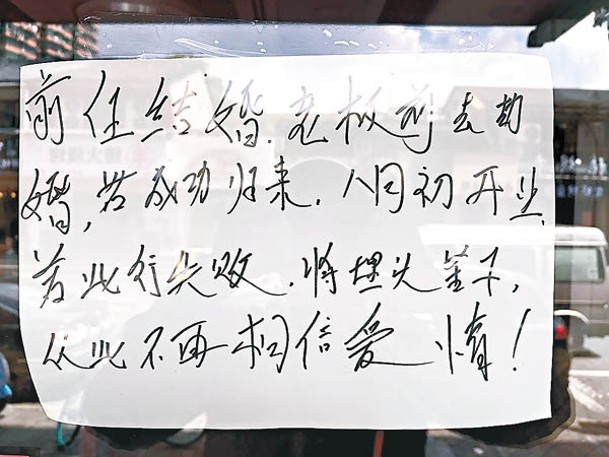 前任结婚.老板前去劫
婚,若成功归来.八月初开业
若此行失败.将埋头苦干,
从此不再相信爱情!